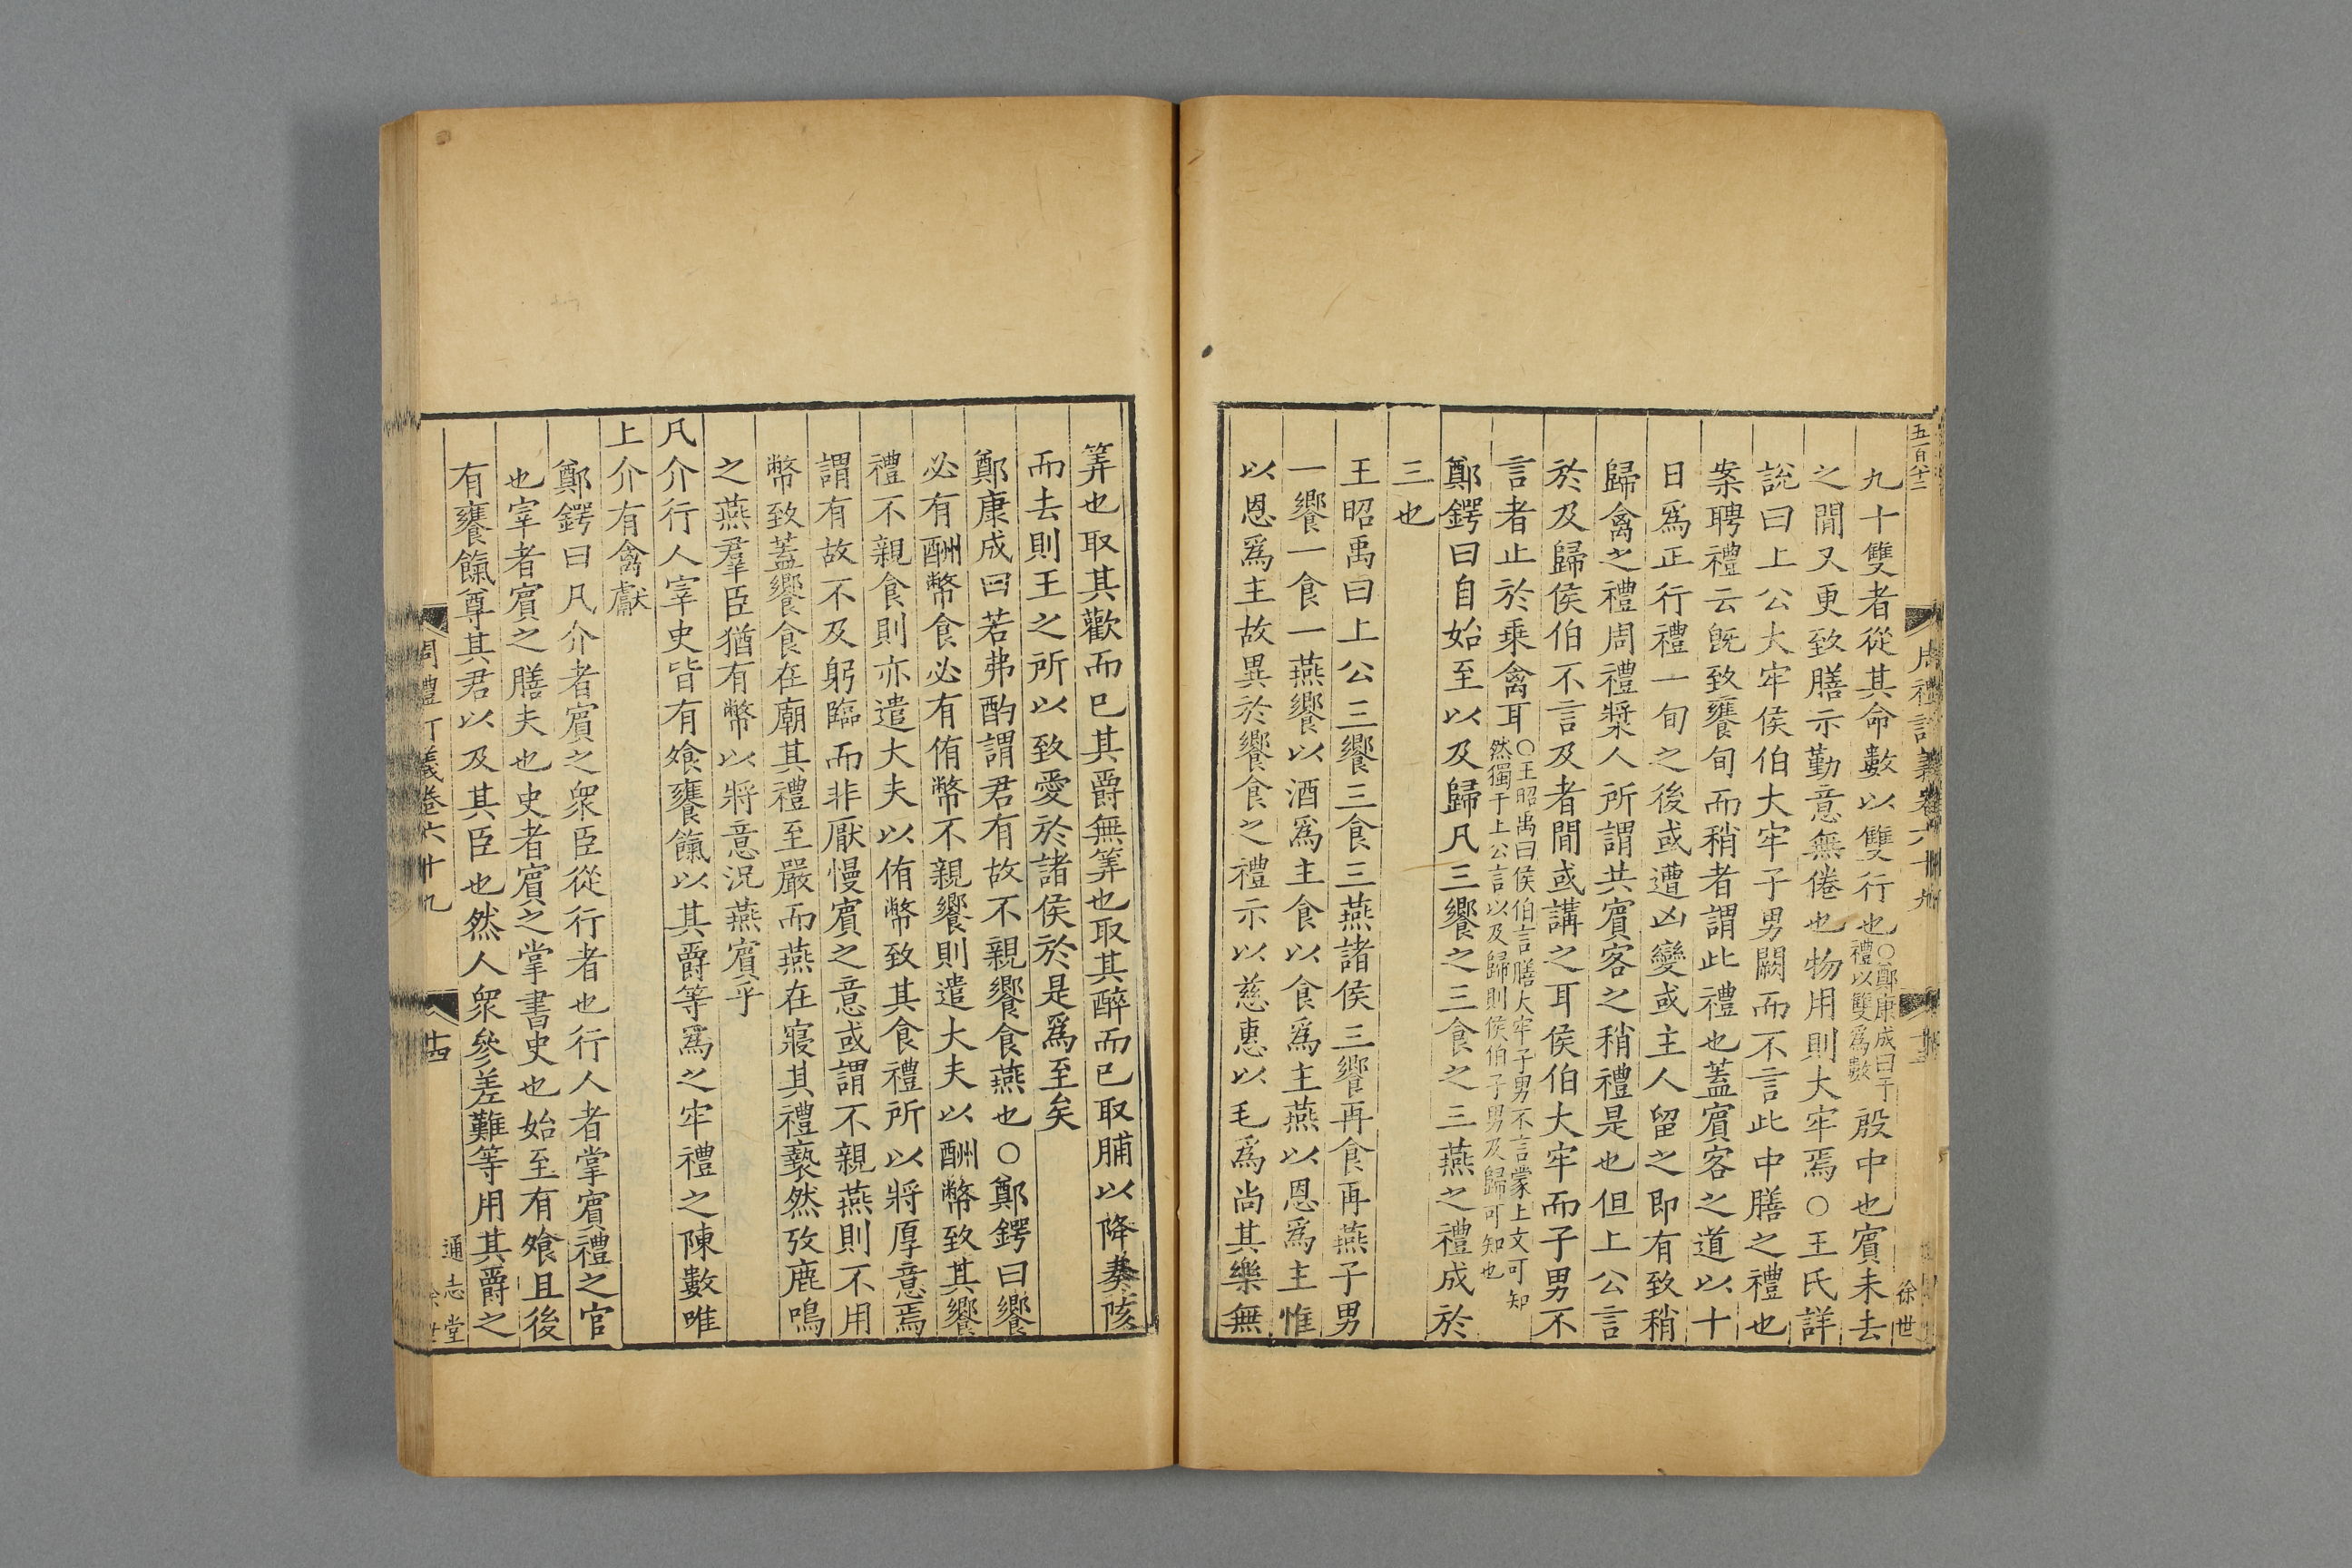 五百十二
周禮訂義卷六十九
徐世
九十雙者從其命數以雙行也○鄭康成曰于禮以雙爲數殷中也賓未去
之閒又更致膳示勤意無倦也物用則大牢焉○王氏詳
說曰上公大牢侯伯大牢子男闕而不言此中膳之禮也
案聘禮云旣致饔旬而稍者謂此禮也蓋賓客之道以十
日爲正行禮一旬之後或遭凶變或主人留之即有致稍
歸禽之禮周禮漿人所謂共賓客之稍禮是也但上公言
於及歸侯伯不言及者閒或講之耳侯伯大牢而子男不
言者止於乗禽耳○王昭禹曰侯伯言膳大牢子男不言蒙上文可知然獨于上公言以及歸則侯伯子男及歸可知也
鄭鍔曰自始至以及歸凡三饗之三食之三燕之禮成於
三也
王昭禹曰上公三饗三食三燕諸侯三饗再食再燕子男
一饗一食一燕饗以酒爲主食以食爲主燕以恩爲主惟
以恩爲主故異於饗食之禮示以慈惠以毛爲尚其樂無
筭也取其歡而已其爵無筭也取其醉而已取脯以降奏陔
而去則王之所以致愛於諸侯於是爲至矣
鄭康成曰若弗酌謂君有故不親饗食燕也○鄭鍔曰饗
必有酬幣食必有侑幣不親饗則遣大夫以酬幣致其饗
禮不親食則亦遣大夫以侑幣致其食禮所以將厚意焉
謂有故不及躬臨而非厭慢賓之意或謂不親燕則不用
幣致蓋饗食在廟其禮至嚴而燕在寢其禮褻然攷鹿鳴
之燕羣臣猶有幣以將意況燕賓乎
凡介行人宰史皆有飧饔餼以其爵等爲之牢禮之陳數唯
上介有禽獻
鄭鍔曰凡介者賓之衆臣從行者也行人者掌賓禮之官
也宰者賓之膳夫也史者賓之掌書史也始至有飧且後
有饔餼尊其君以及其臣也然人衆參差難等用其爵之
周禮訂義卷六十九
十四
通志堂